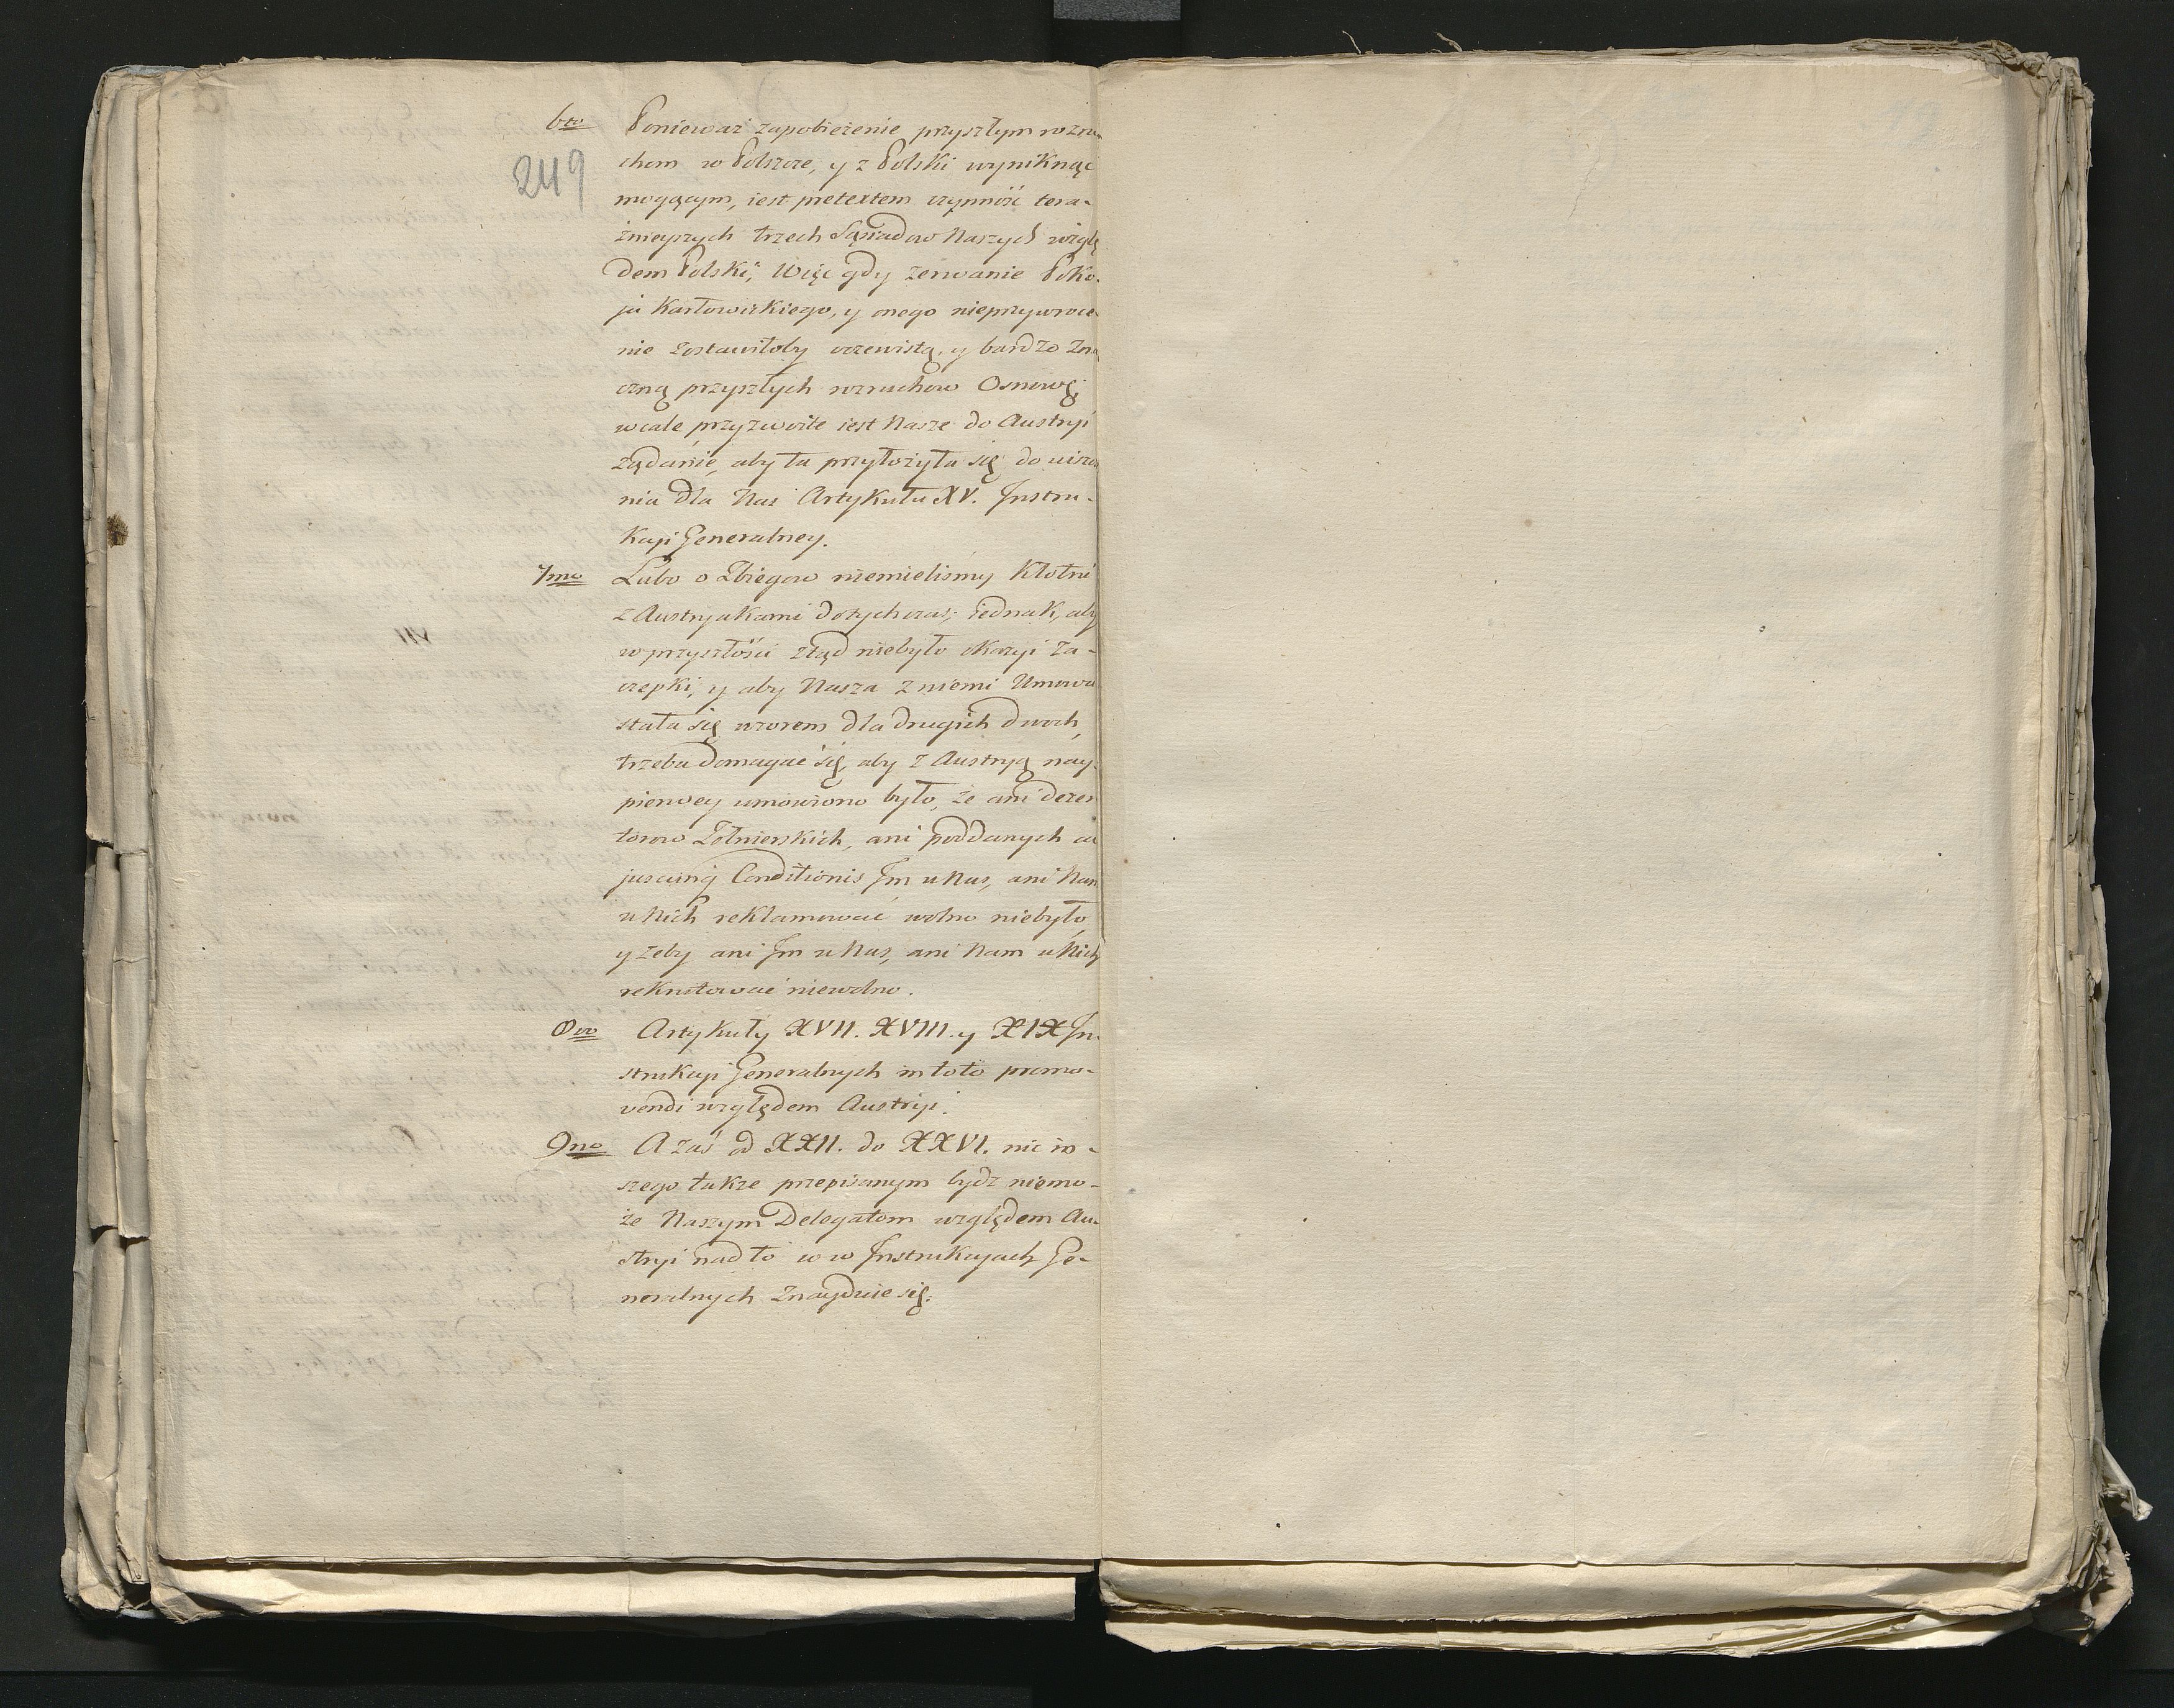 6to Ponieważ zapobieżenie przyszłym rozru-
249
chom w Polszcze, y z Polski wyniknąć
mogącym, iest pretextem czynność tera-
źnieyszych trzech Sąsiadow Naszych wzglę
dem Polski; Więc gdy zerwanie Poko-
ju Karłowickiego, y onego nieprzywroce-
nie zostawiłoby oczewistą, y bardzo zna
czną przyszłych rozruchow Osnowę;
wcale przyzwoite iest Nasze do Austryi
żądanie, aby ta przyłożyła się do uiszcze
nia dla Nas Artykułu XV. Instru-
kcyi Generalney.
7mo Lubo o Zbiegow niemieliśmy Kłotni
z Austryakami dotychczas; iednak, aby
w przyszłości ztąd niebyło okazyi za-
czepki, y aby Nasza z niemi Umowa
stała się wzorem dla drugich dwoch,
trzeba domagać się, aby z Austryą nay-
pierwey umowiono było, że ani dezer
torow Żołnierskich, ani poddanych cu
juscunq Conditionis Im u Nas, ani Nam
u Nich reklamować wolno niebyło,
y żeby ani Im u Nas, ani Nam u Nich
rekrutować niewolno.
8vo Artykuły XVII. XVIII. y XIX In-
strukcyi Generalnych in toto promo-
vendi względem Austryi.
9no A zaś od XXII. do XXVI. nic in-
szego także przepisanym bydź niemo-
że Naszym Delegatom względem Au-
stryi nad to co w Instrukcyach Ge-
neralnych znayduie się.